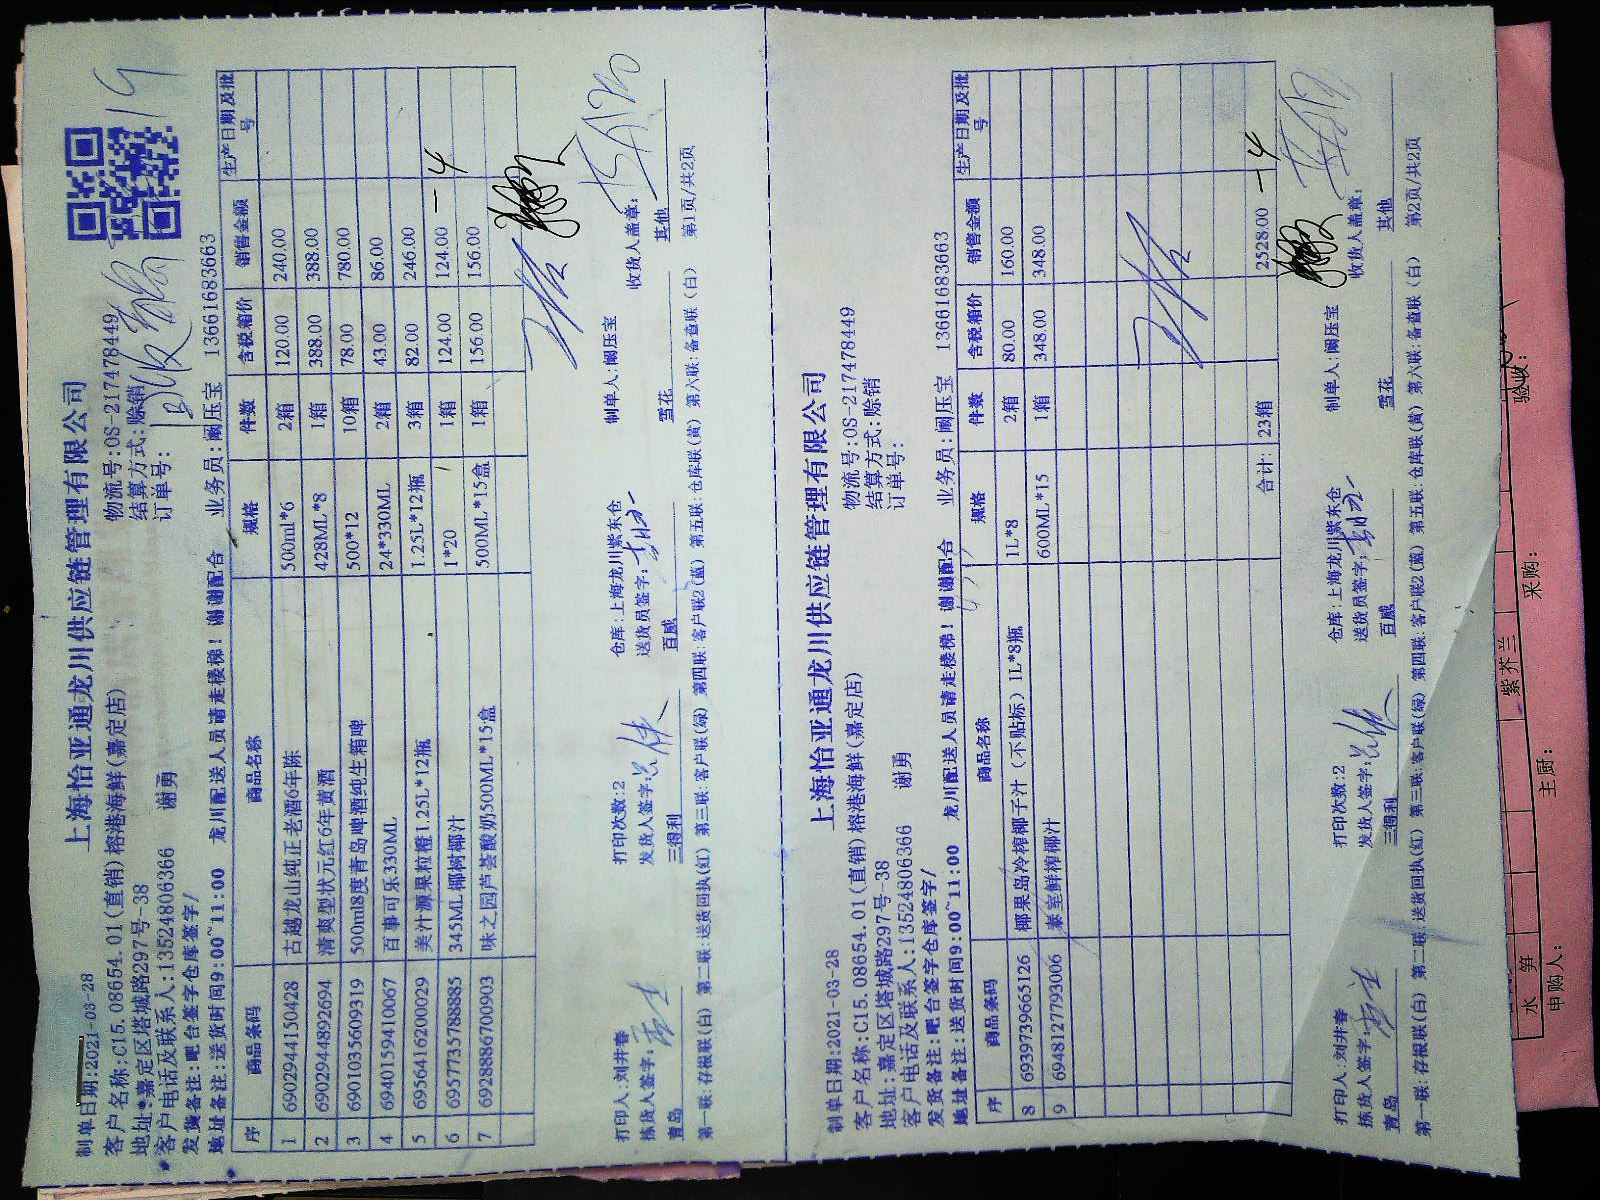 上海怡亚通龙川供应链管理有限公司
制单日期:2021-03-28 物流号:OS-217478449
客户名称:C15.08654.01(直销)榕港海鲜(嘉定店) 结算方式:赊销
地址:嘉定区塔城路297号-38 订单号:
客户电话及联系人:13524806366 谢勇
发货备注:吧台签字仓库签字/
地址备注:送货时间9:00~11:00 龙川配送人员请走楼梯!谢谢配合 业务员:阚压宝 13661683663
序 商品条码 商品名称 规格 件数 含税箱价 销售金额 生产日期及批号
1 6902944150428 古越龙山纯正老酒6年陈 500ml*6 2箱 120.00 240.00
2 6902944892694 清爽型状元红6年黄酒 428ML*8 1箱 388.00 388.00
3 6901035609319 500ml8度青岛啤酒纯生箱啤 500*12 10箱 78.00 780.00
4 6940159410067 百事可乐330ML 24*330ML 2箱 43.00 86.00
5 6956416200029 美汁源果粒橙1.25L*12瓶 1.25L*12瓶 3箱 82.00 246.00
6 6957735788885 345ML椰树椰汁 1*20 1箱 124.00 124.00 —4
7 6928886700903 味之园芦荟酸奶500ML*15盒 500ML*15盒 1箱 156.00 156.00
打印人:刘井春 打印次数:2 仓库:上海龙川紫东仓 制单人:阚压宝
拣货人签字: 发货人签字: 送货员签字: 收货人盖章:
青岛 三得利 百威 雪花 其他
第一联:存根联(白) 第二联:送货回执(红) 第三联:客户联(绿) 第四联:客户联2(蓝) 第五联:仓库联(黄) 第六联:备查联(白) 第1页/共2页
上海怡亚通龙川供应链管理有限公司
制单日期:2021-03-28 物流号:OS-217478449
客户名称:C15.08654.01(直销)榕港海鲜(嘉定店) 结算方式:赊销
地址:嘉定区塔城路297号-38 订单号:
客户电话及联系人:13524806366 谢勇
发货备注:吧台签字仓库签字/
地址备注:送货时间9:00~11:00 龙川配送人员请走楼梯!谢谢配合 业务员:阚压宝 13661683663
序 商品条码 商品名称 规格 件数 含税箱价 销售金额 生产日期及批号
8 6939739665126 椰果岛冷榨椰子汁(不贴标)1L*8瓶 1L*8 2箱 80.00 160.00
9 6948127793006 泰室鲜榨椰汁 600ML*15 1箱 348.00 348.00
合计: 23箱 2528.00 —4
打印人:刘井春 打印次数:2 仓库:上海龙川紫东仓 制单人:阚压宝
拣货人签字: 发货人签字: 送货员签字: 收货人盖章:
青岛 三得利 百威 雪花 其他
第一联:存根联(白) 第二联:送货回执(红) 第三联:客户联(绿) 第四联:客户联2(蓝) 第五联:仓库联(黄) 第六联:备查联(白) 第2页/共2页
水 笋 紫芥兰
申购人: 主厨: 采购: 验收: